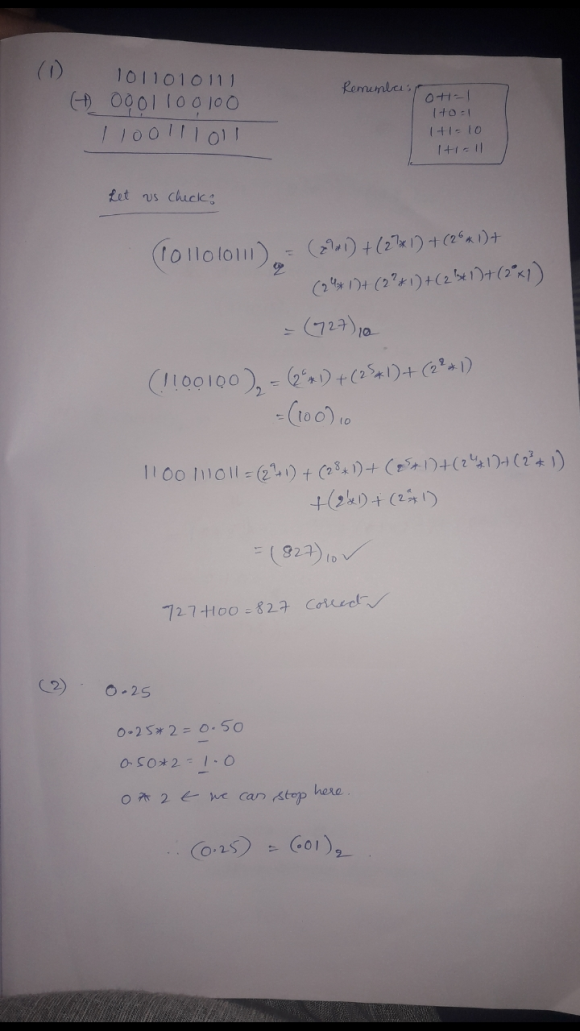 (1)
1011010111
(+) 0001100100
1100111011
Remember:
0+1=1
1+0=1
1+1=10
1+1=11
Let us check:
(1011010111)₂ = (2⁹*1)+(2⁷*1)+(2⁶*1)+
(2⁴*1)+(2²*1)+(2¹*1)+(2⁰*1)
= (727)₁₀
(1100100)₂ = (2⁶*1)+(2⁵*1)+(2²*1)
=(100)₁₀
1100111011=(2⁹*1)+(2⁸*1)+(2⁵*1)+(2⁴*1)+(2³*1)
+(2¹*1)+(2⁰*1)
=(827)₁₀✓
727+100=827 correct✓
(2) 0.25
0.25*2=0.50
0.50*2=1.0
0*2 ← we can stop here.
∴ (0.25) = (.01)₂